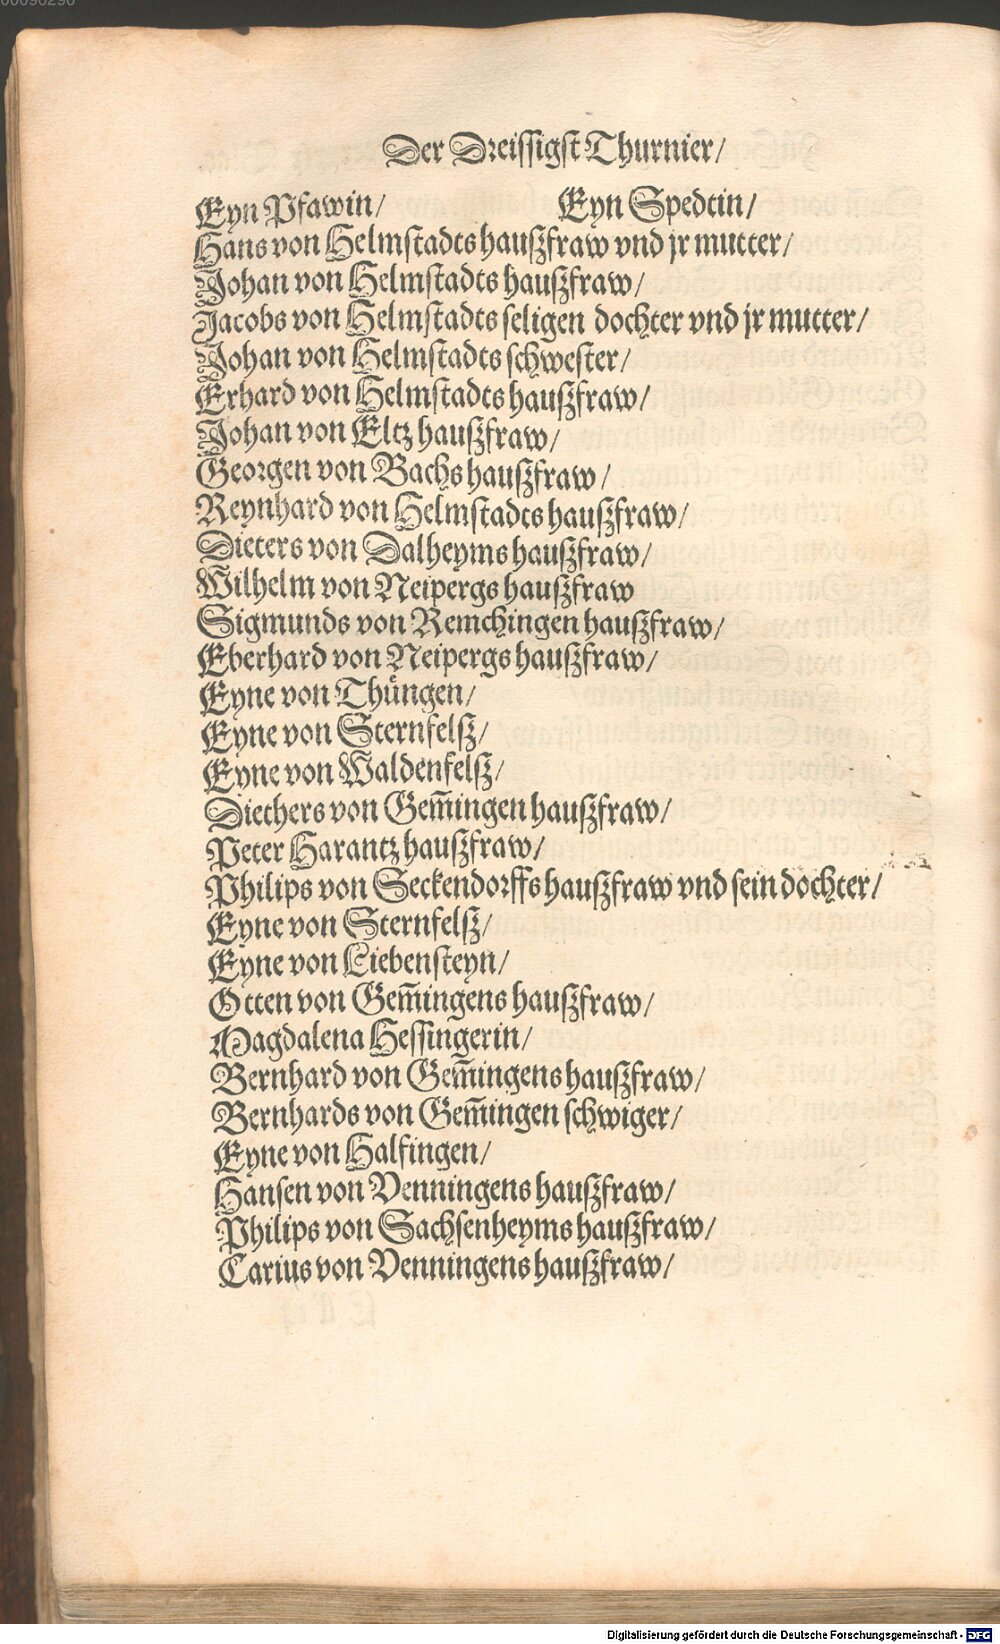 00090290
Der Dreissigst Thurnier/
Eyn Pfawin/ Eyn Spedtin/
Hans von Helmstadts haußfraw vnd jr mutter/
Johan von Helmstadts haußfraw/
Jacobs von Helmstadts seligen dochter vnd jr mutter/
Johan von Helmstadts schwester/
Erhard von Helmstadts haußfraw/
Johan von Eltz haußfraw/
Georgen von Bachs haußfraw/
Reynhard von Helmstadts haußfraw/
Dieters von Dalheyms haußfraw/
Wilhelm von Neipergs haußfraw
Sigmunds von Remchingen haußfraw/
Eberhard von Neipergs haußfraw/
Eyne von Thüngen/
Eyne von Sternfelß/
Eyne von Waldenfelß/
Diethers von Gem̄ingen haußfraw/
Peter Harantz haußfraw/
Philips von Seckendorffs haußfraw vnd sein dochter/
Eyne von Sternfelß/
Eyne von Liebensteyn/
Otten von Gem̄ingens haußfraw/
Magdalena Hessingerin/
Bernhard von Gem̄ingens haußfraw/
Bernhards von Gem̄ingen schwiger/
Eyne von Halfingen/
Hansen von Venningens haußfraw/
Philips von Sachsenheyms haußfraw/
Carius von Venningens haußfraw/
Digitalisierung gefördert durch die Deutsche Forschungsgemeinschaft - DFG